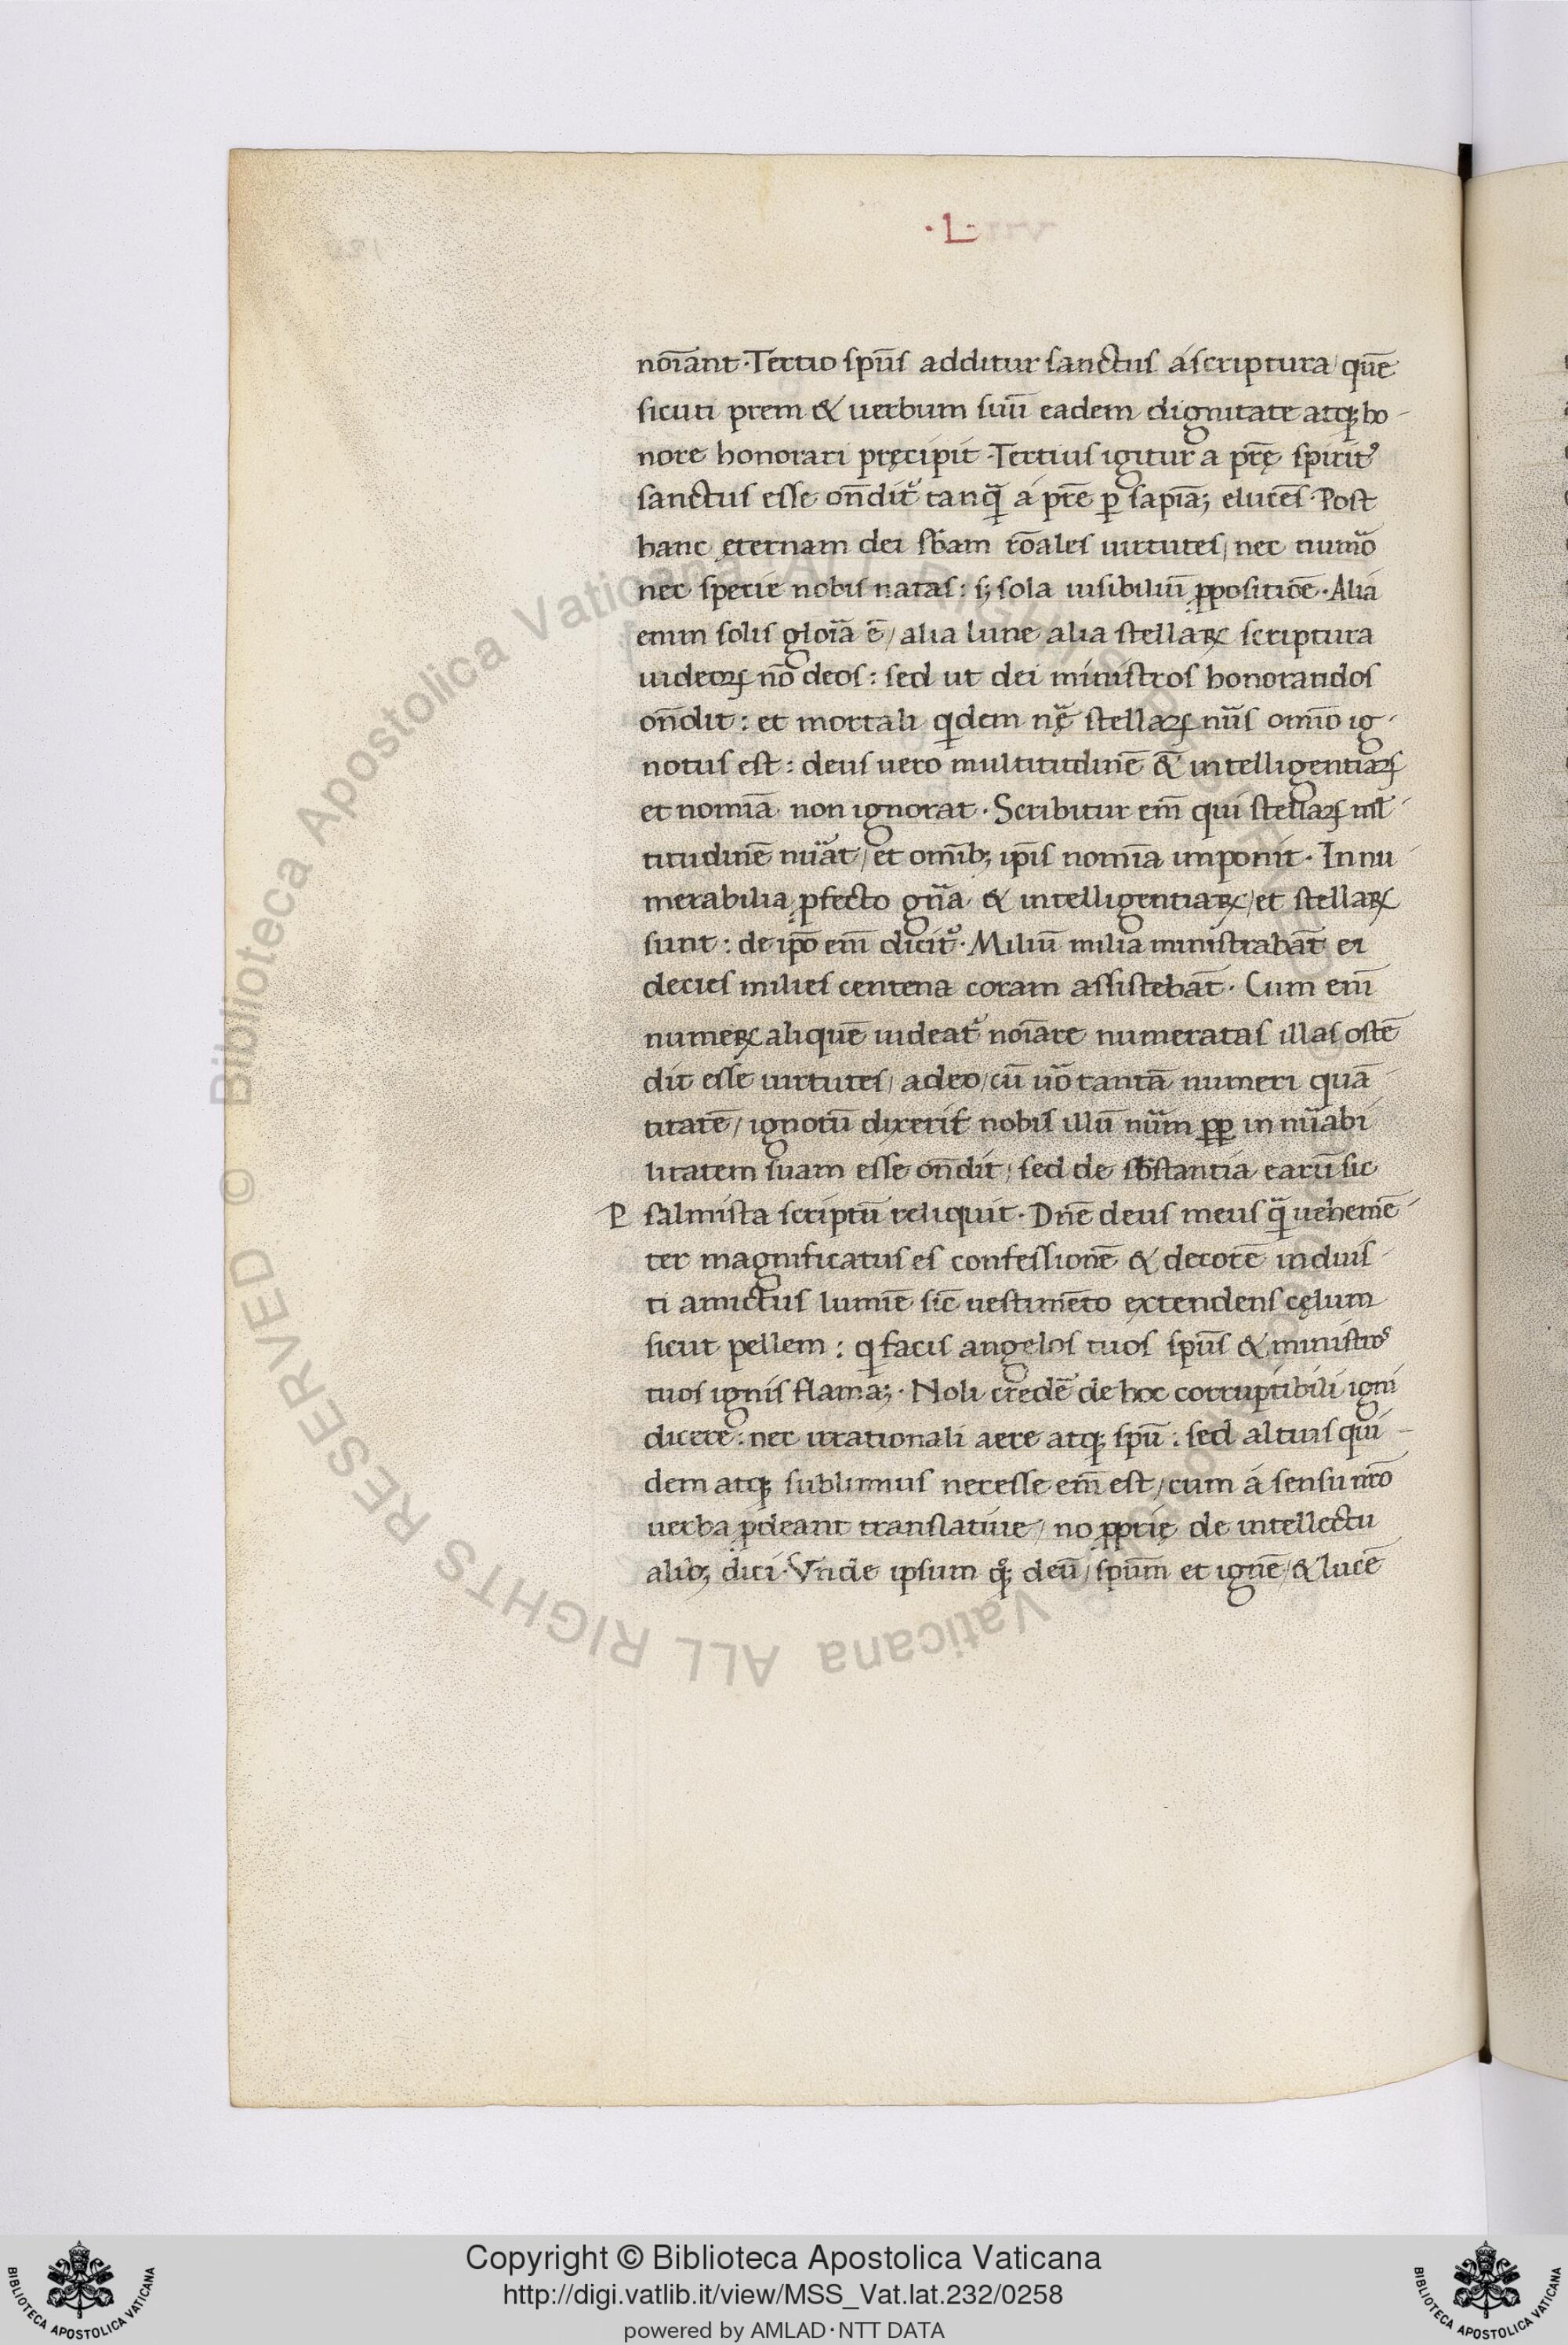 ·L·
noīant · Tertio sp̄us additur sanctus á scriptura / quē
sicuti p̄rem & uerbum suū eadem dignitate atq; ho-
nore honorari pręcipit · Tertius igitur a p̄rę spirit᾿
sanctus esse on̄dit᾿ tanq̄ á p̄re ꝑ sapīa; eluces · Post
hanc ęternam dei sb̄am rōales uirtutes / nec numo᾿
nec specie nobis natas : s; sola uisibiliū ꝓpositiōe · Alia
enim solis gloīa ē / alia lune alia stellaꝝ scriptura
uideoꝝ nō deos : sed ut dei ministros honorandos
on̄dit : et mortali qdem nę᾿ stellaꝝ nūs omīo ig-
notus est : deus uero multitudinē & intelligentiaꝝ
et nomīa non ignorat · Scribitur em̄ qui stellaꝝ ml᾿-
titudinē nūat / et omīb; ip̄is nomīa imponit · Innu
merabilia ꝓfecto gn̄a & intelligentiaꝝ / et stellaꝝ
sunt : de ip̄o em̄ dicit᾿ · Miliū milia ministrabāt ei
decies milies centena coram assistebāt · Cum em̄
numeꝝ aliquē uideat᾿ noīare numeratas illas ostē
dit esse uirtutes / adeo / cū uō tantā numeri quā-
titatē / ignotū dixerit nobis illū nūm ꝓꝑ in nūabi
litatem suam esse on̄dit / sed de sb̄stantia earū sic
P salmista scriptū reliquit · Dn̄e deus meus q̄ uehemē-
ter magnificatus es confessionē & decorē induis-
ti amictus lumīe sic̄ uestimēto extendens cęlum
sicut pellem : q facis angelos tuos sp̄us & ministros
tuos ignis flama; · Noli credē᾿ de hoc corruptibili igni
dicere : nec irrationali aere atq; sp̄u : sed altius qui-
dem atq; sublimius necesse em̄ est / cum á sensu nr̄o
uerba ꝓdeant translatiue / no ꝓprię de intellectu
alib; dici · Vnde ipsum qͦ; deū / sp̄um et ignē / & lucē
Copyright © Biblioteca Apostolica Vaticana
http://digi.vatlib.it/view/MSS_Vat.lat.232/0258
powered by AMLAD·NTT DATA
BIBLIOTECA APOSTOLICA VATICANA
BIBLIOTECA APOSTOLICA VATICANA
© Biblioteca Apostolica Vaticana ALL RIGHTS RESERVED